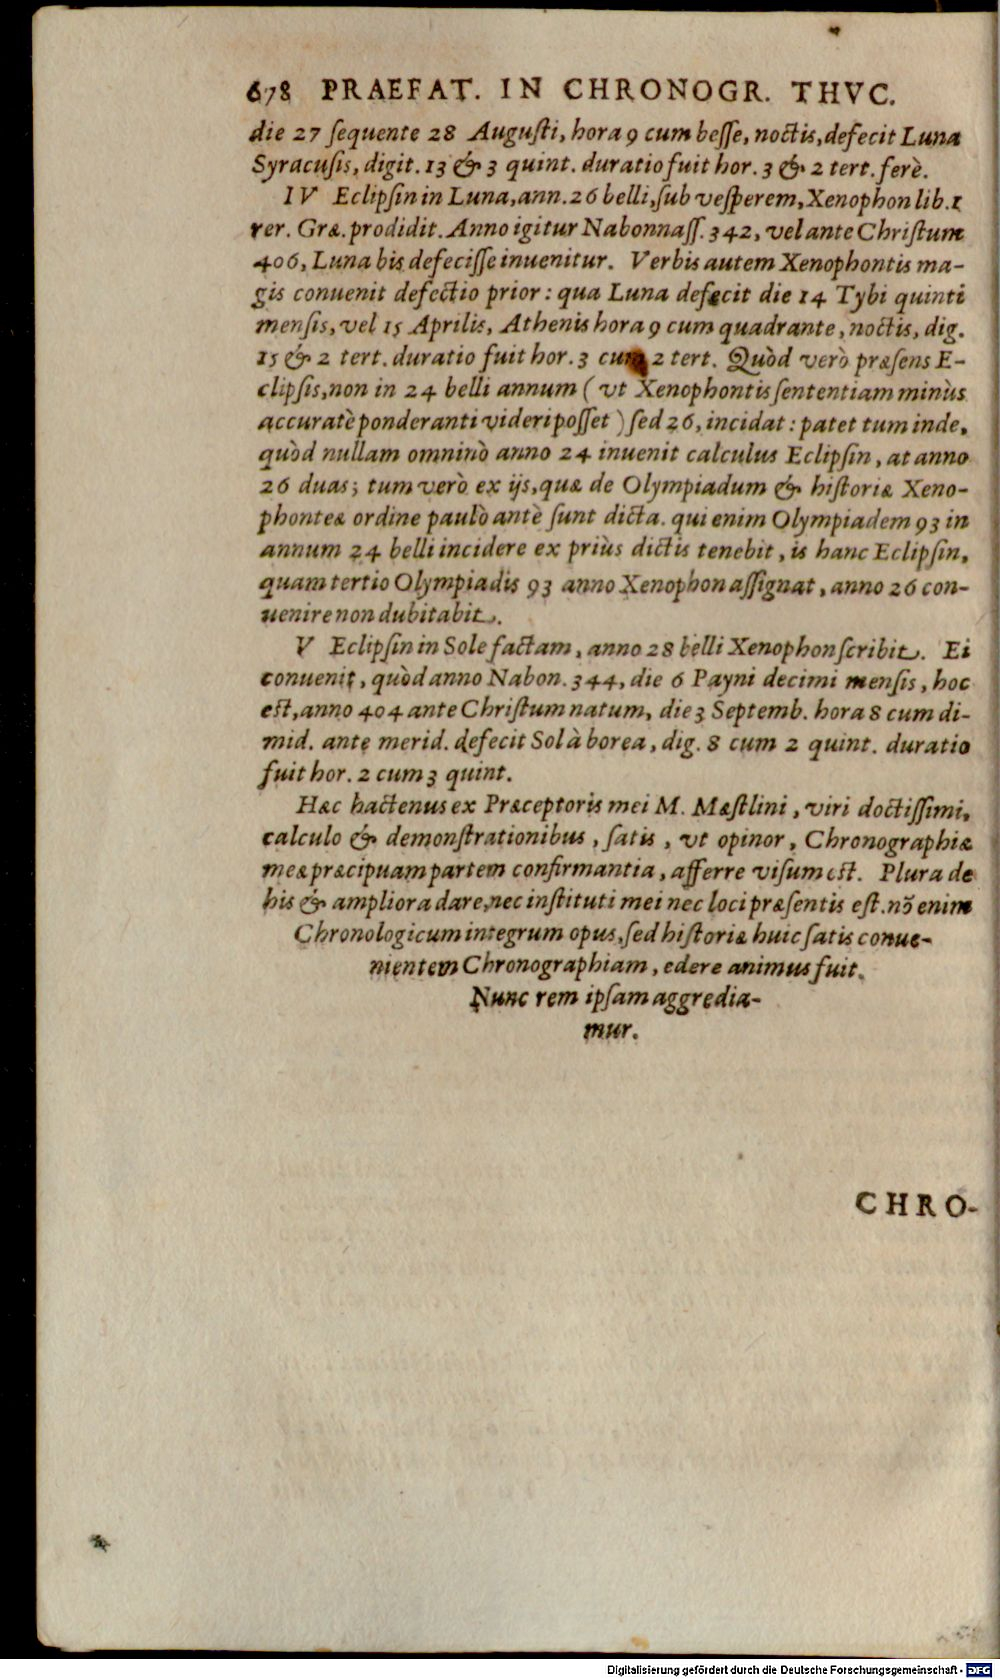 678 PRAEFAT. IN CHRONOGR. THVC.
die 27 ſequente 28 Auguſti, hora 9 cum beſſe, noctis, defecit Luna
Syracuſis, digit. 13 & 3 quint. duratio fuit hor. 3 & 2 tert. ferè.
IV Eclipſin in Luna, ann. 26 belli, ſub veſperem, Xenophon lib. 1
rer. Græ. prodidit. Anno igitur Nabonnaſſ. 342, vel ante Chriſtum
406, Luna bis defeciſſe inuenitur. Verbis autem Xenophontis ma-
gis conuenit defectio prior: qua Luna defecit die 14 Tybi quinti
menſis, vel 15 Aprilis, Athenis hora 9 cum quadrante, noctis, dig.
15 & 2 tert. duratio fuit hor. 3 cum 2 tert. Quòd verò præſens E-
clipſis, non in 24 belli annum (vt Xenophontis ſententiam minùs
accuratè ponderanti videri poſſet) ſed 26, incidat: patet tum inde,
quòd nullam omninò anno 24 inuenit calculus Eclipſin, at anno
26 duas; tum verò ex ijs, quæ de Olympiadum & hiſtoriæ Xeno-
phonteæ ordine paulò antè ſunt dicta. qui enim Olympiadem 93 in
annum 24 belli incidere ex priùs dictis tenebit, is hanc Eclipſin,
quam tertio Olympiadis 93 anno Xenophon aſſignat, anno 26 con-
uenire non dubitabit.
V Eclipſin in Sole factam, anno 28 belli Xenophon ſcribit. Ei
conuenit, quòd anno Nabon. 344, die 6 Payni decimi menſis, hoc
est, anno 404 ante Chriſtum natum, die 3 Septemb. hora 8 cum di-
mid. ante merid. defecit Sol à borea, dig. 8 cum 2 quint. duratio
fuit hor. 2 cum 3 quint.
Hæc hactenus ex Præceptoris mei M. Mæſtlini, viri doctiſſimi,
calculo & demonſtrationibus, ſatis, vt opinor, Chronographiæ
meæ præcipuam partem confirmantia, afferre viſum est. Plura de
his & ampliora dare, nec inſtituti mei nec loci præſentis eſt. nō enim
Chronologicum integrum opus, ſed hiſtoriæ huic ſatis conue-
nientem Chronographiam, edere animus fuit.
Nunc rem ipſam aggredia-
mur.
CHRO-
Digitalisierung gefördert durch die Deutsche Forschungsgemeinschaft - DFG